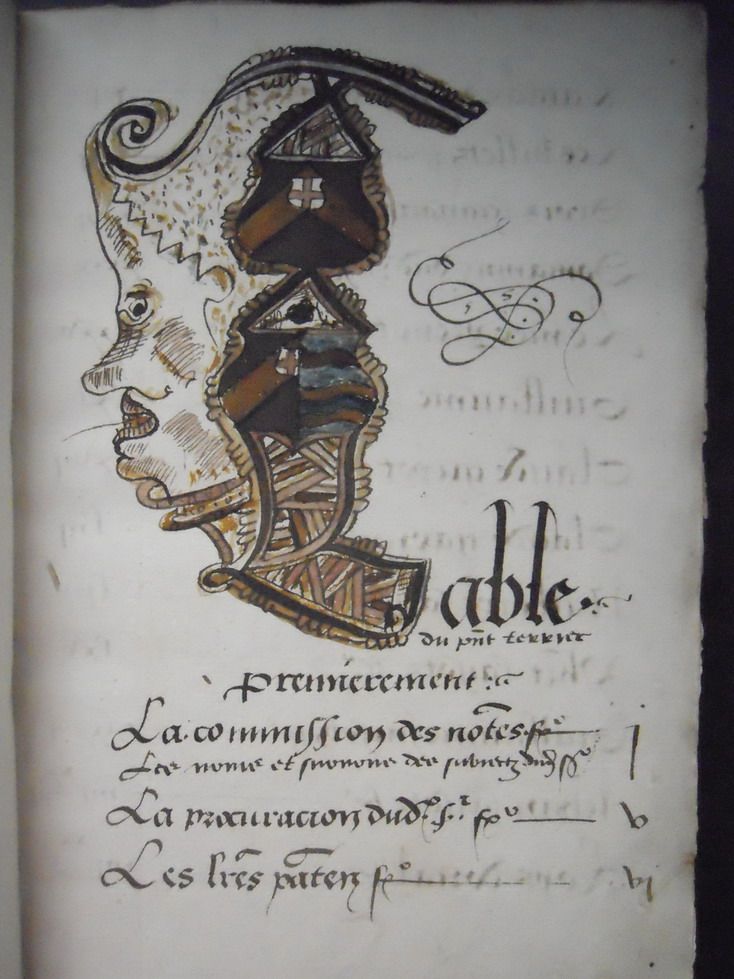 Table
du pn̄t terrier
premierement
La commission des notēs fº j
Les noms et surnoms des subiectz dud
La procuracion dudº sʳ fº v
Les lrēs patētz fº vi